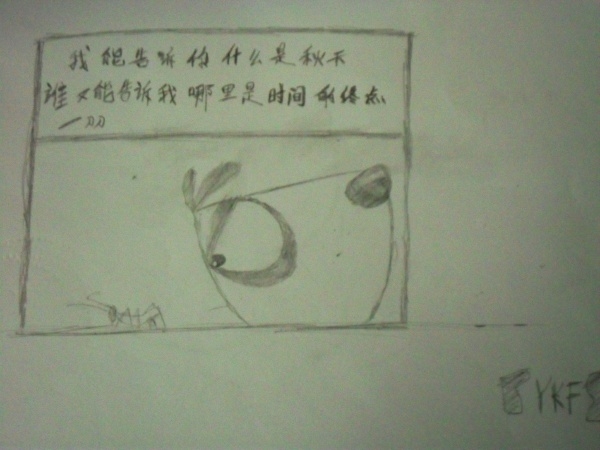 我能告诉你什么是秋天
谁又能告诉我哪里是时间的终点
一刀刀
YKF